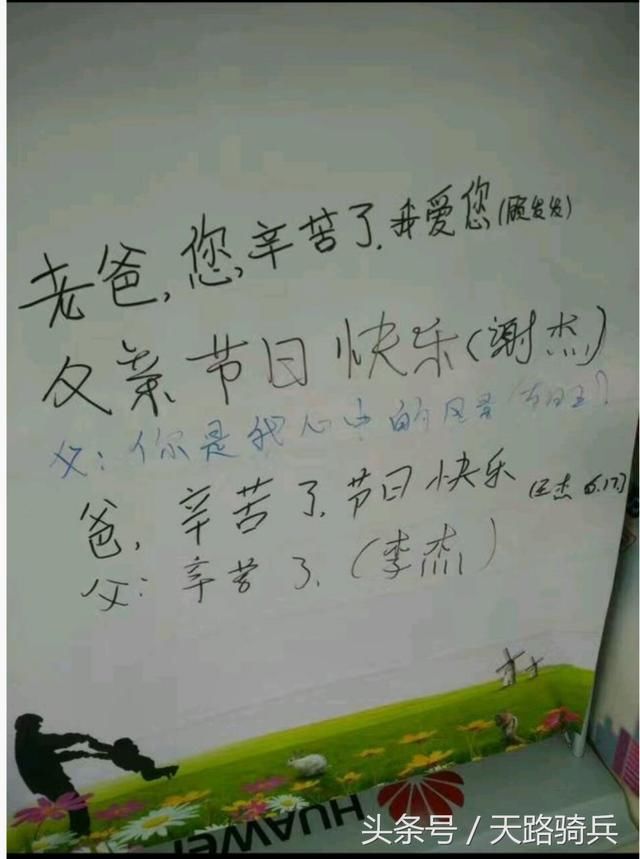 老爸,您,辛苦了.我爱您(顾发发)
父亲节日快乐(谢杰)
父:你是我心中的风景
爸,辛苦了,节日快乐(王杰 6.17)
父:辛苦了.(李杰)
HUAWEI
头条号/天路骑兵